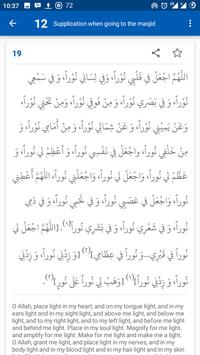 10:37
72
12 Supplication when going to the masjid
19
اللَّهُمَّ اجْعَلْ فِي قَلْبِي نُوْراً، وَ فِي لِسَانِي نُوْراً، وَ فِي سَمْعِي
نُوْراً، وَ فِي بَصَرِي نُوْراً، وَ مِنْ فَوْقِي نُوْراً، وَ مِنْ تَحْتِي نُوْراً،
وَ عَنْ يَمِيْنِي نُوْراً، وَ عَنْ شِمَالِي نُوْراً، وَ مِنْ أَمَامِي نُوْراً،
وَ مِنْ خَلْفِي نُوْراً، واجْعَلْ فِي نَفْسِي نُوْراً، وَ أَعْظِمْ لِي نُوْراً،
وَ عَظِّمْ لِي نُوْراً، وَاجْعَلْ لِي نُوْراً، وَاجْعَلْنِي نُوْراً، اللَّهُمَّ أَعْطِنِي
نُوْراً، وَاجْعَلْ فِي عَصَبِي نُوْراً، وَ فِي لَحْمِي نُوْراً، وَ فِي دَمِي
نُوْراً، وَ فِي شَعْرِي نُوْراً، وَ فِي بَشَرِي نُوْراً(١). [اللَّهُمَّ اجْعَلْ لِي
نُوْراً فِي قَبْرِي... وَ نُوْراً فِي عِظَامِي](٢) [وَ زِدْنِي نُوْراً، وَ زِدْنِي
نُوْراً، وَ زِدْنِي نُوْراً](٣) [وَهَبْ لِي نُوْراً عَلَى نُوْرٍ](٤)
O Allah, place light in my heart, and on my tongue light, and in my
ears light and in my sight light, and above me light, and below me
light, and to my right light, and to my left light, and before me light
and behind me light. Place in my soul light. Magnify for me light,
and amplify for me light. Make for me light and make me a light. O
Allah, grant me light, and place light in my nerves, and in my
body light and in my blood light and in my hair light and in my skin